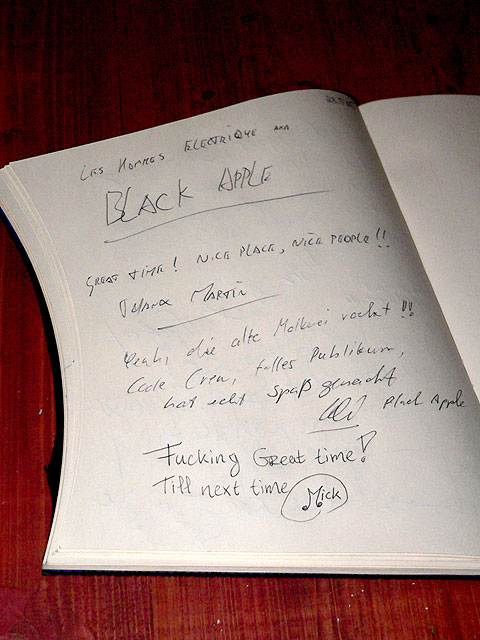 LES HOMMES ELECTRIQUE AKA
BLACK APPLE
GREAT TIME! NICE PLACE, NICE PEOPLE!!
MARTIN
Yeah, die alte Molkerei rockt!!
Coole Crew, tolles Publikum,
hat echt Spaß gemacht
Black Apple
Fucking Great time!
Till next time
Mick